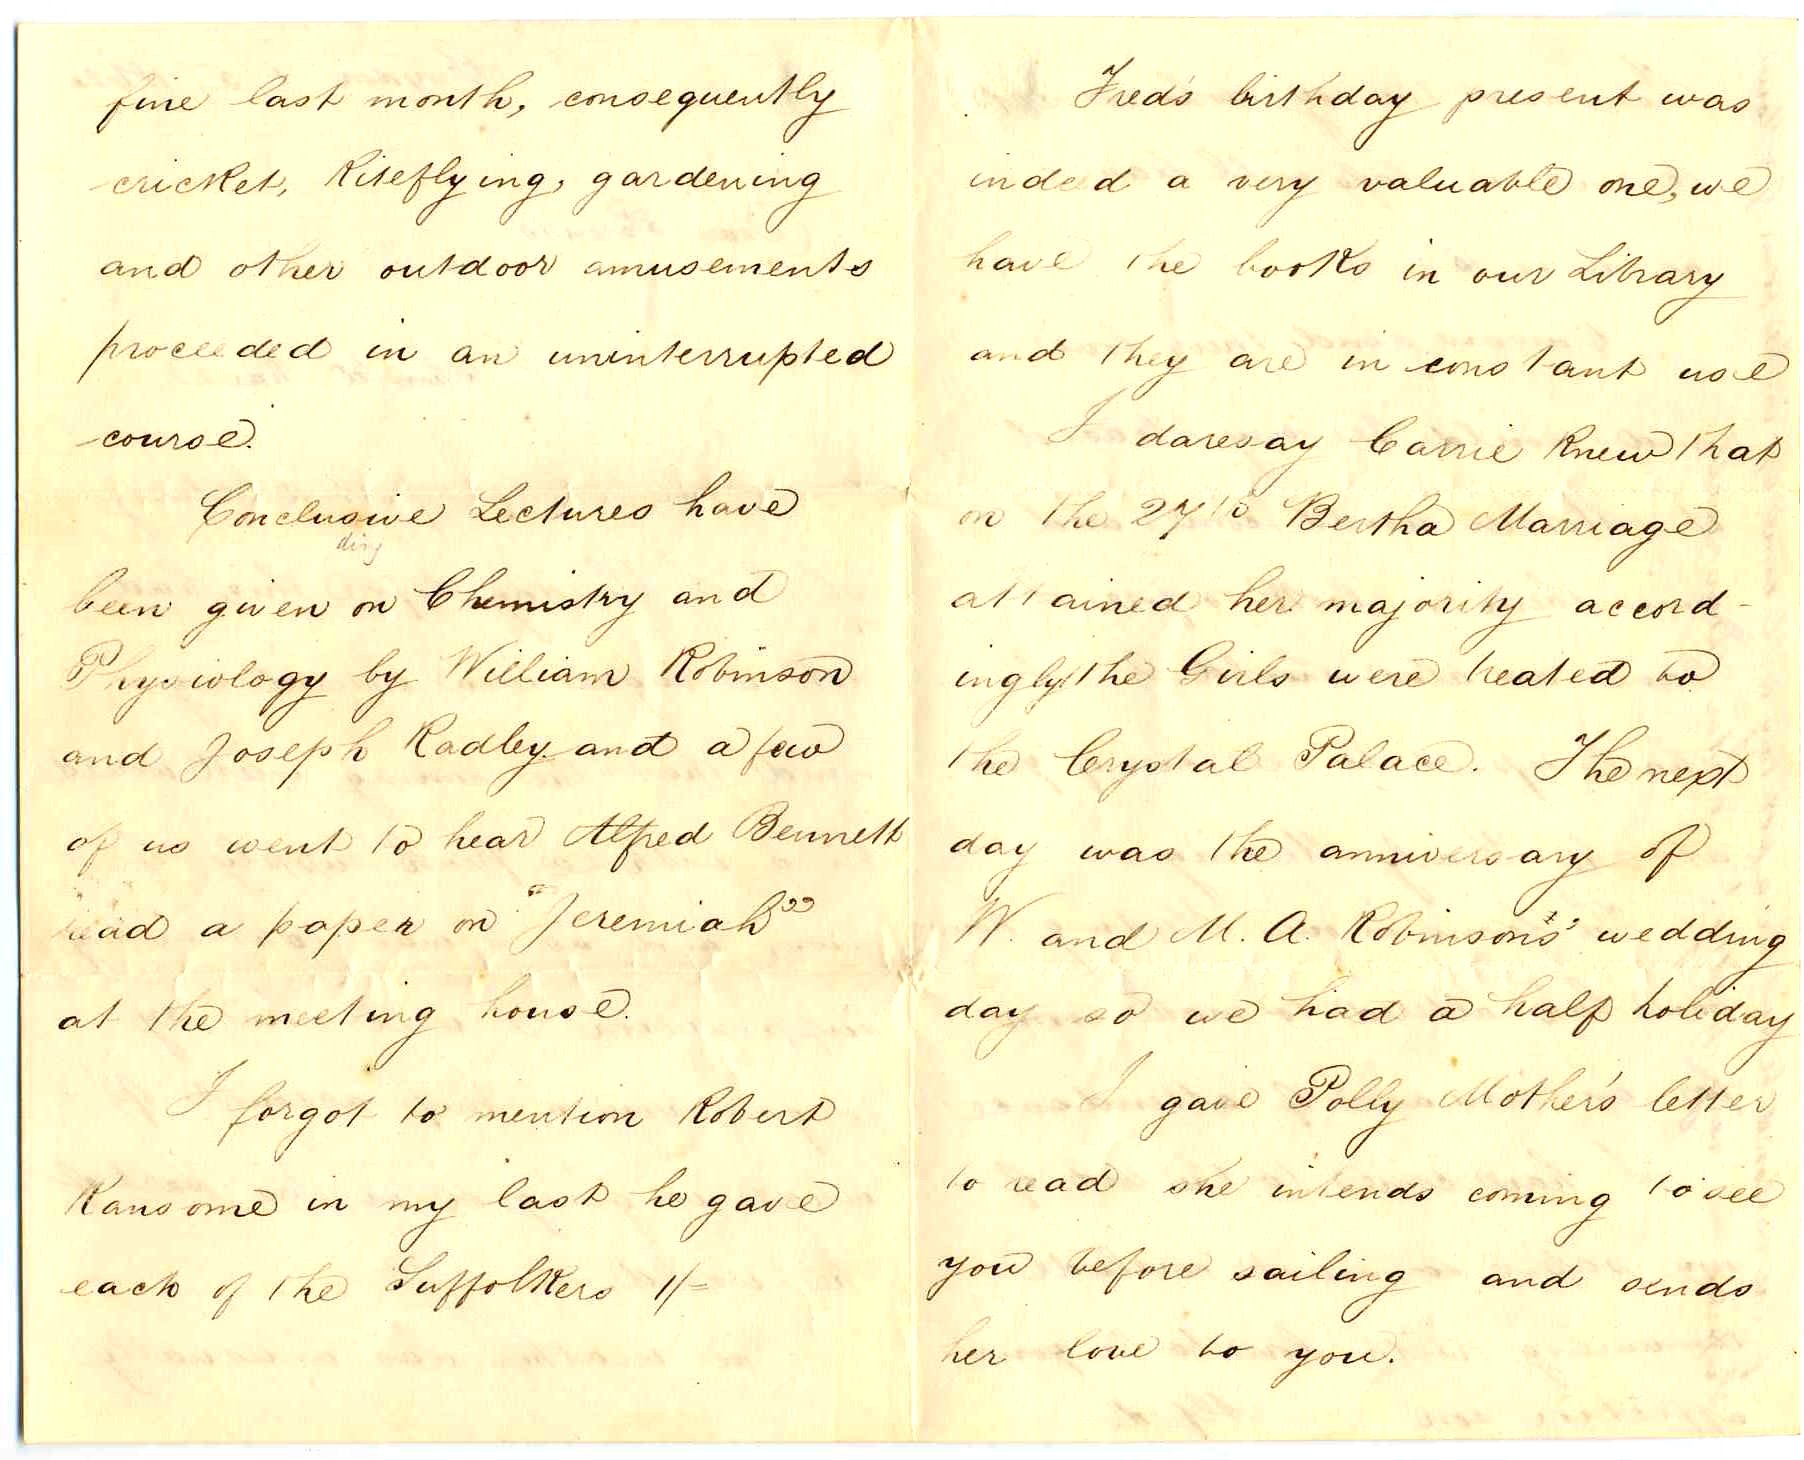 fine last month, consequently
cricket, Kiteflying, gardening
and other outdoor amusements
proceeded in an uninterrupted
course.
Conclusive Lectures have
ding
been given on Chemistry and
Physiology by William Robinson
and Joseph Radley and a few
of us went to hear Alfred Bennett
read a paper on "Jeremiah"
at the meeting house.
I forgot to mention Robert
Ransome in my last he gave
each of the Suffolkers 1/=
Fred's birthday present was
indeed a very valuable one, we
have the books in our Library
and they are in constant use
I daresay Carrie knew that
on the 27th Bertha Marriage
attained her majority accord-
ingly the Girls were treated to
the Crystal Palace. The next
day was the anniversary of
W. and M. A. Robinson's' wedding
day so we had a half holiday
I gave Polly Mother's letter
to read she intends coming to see
you before sailing and sends
her love to you.